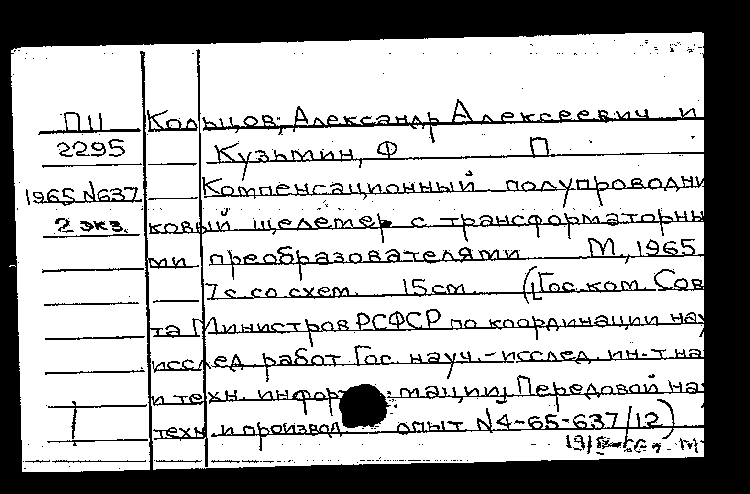 П11 Кольцов, Александр Алексеевич и
2295 Кузьмин, Ф П
1965 N637 Компенсационный полупроводни
2 экз. ковый щелемер с трансформаторны
ми преобразователями М., 1965
7 с. со схем. 15 см. (Гос. ком. Сов
та Министров РСФСР по координации нау
исслед. работ Гос. науч.-исслед. ин-т на
и техн. информации Передовой на
техн. и производ опыт N4-65-637/12)